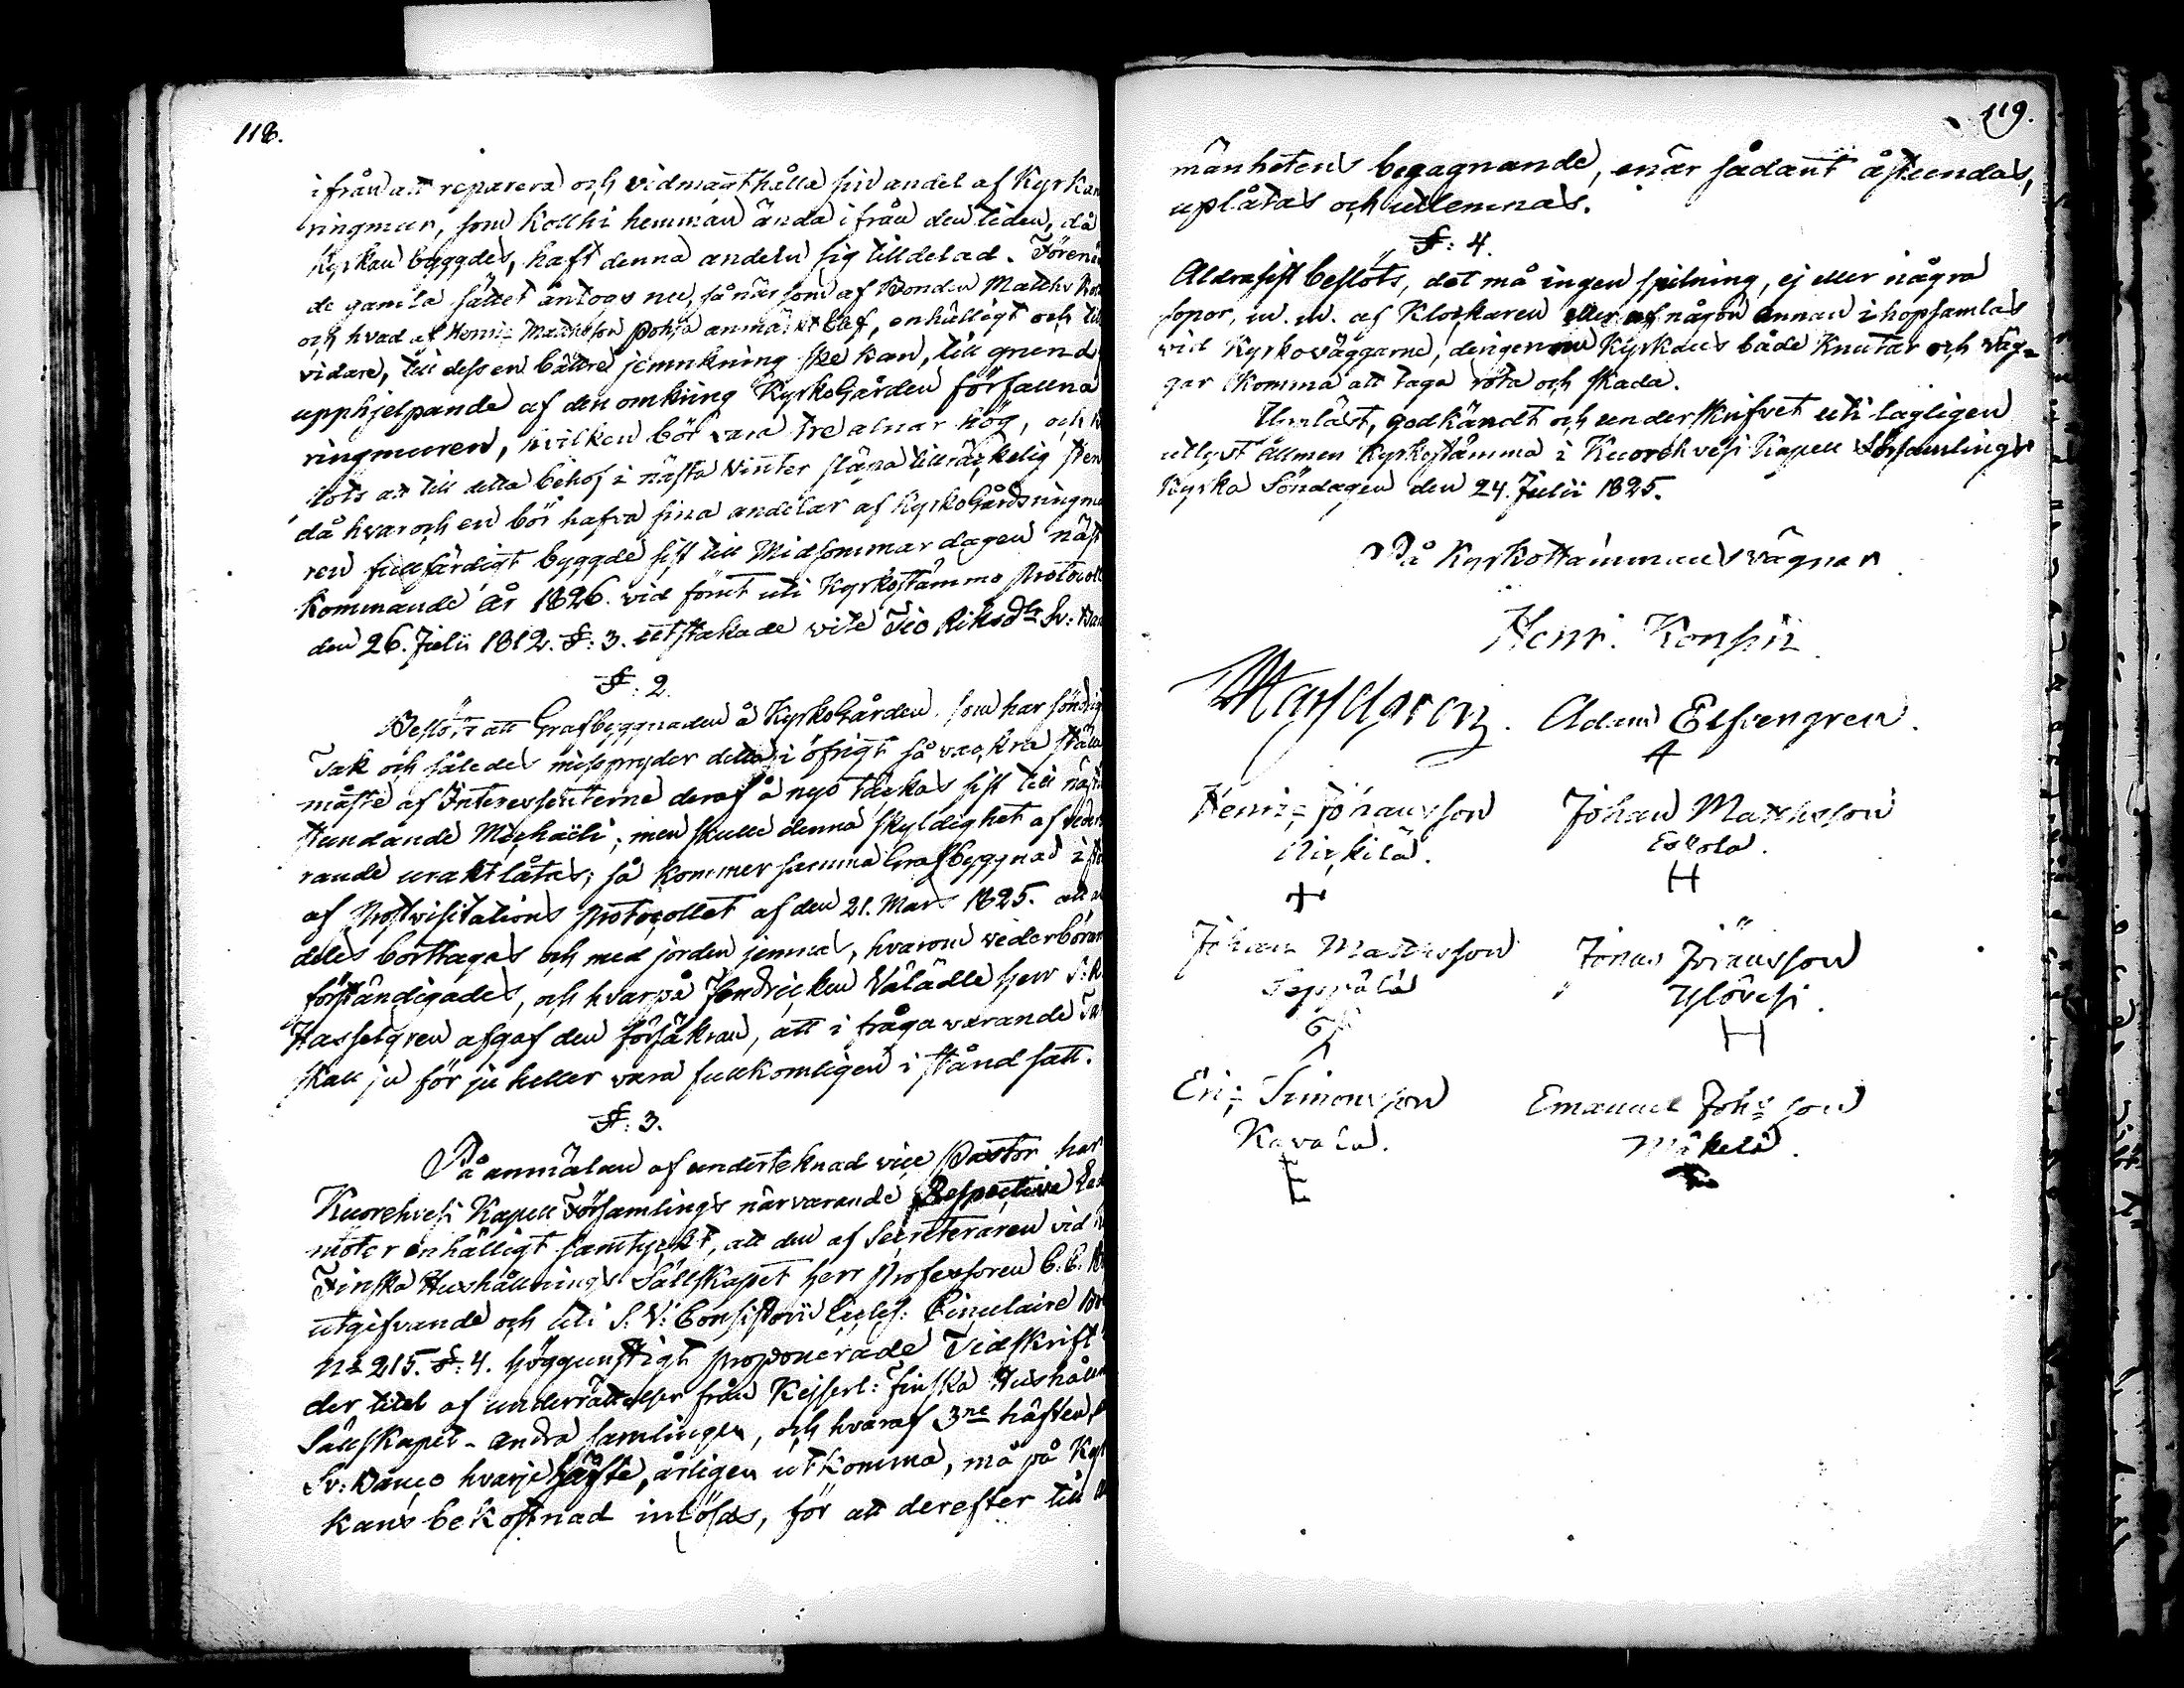 118.
ifrån att reparera och vidmagthålla sin andel af Kyrkan
ringmur, som Kolkki hemman ända ifrån den tiden, då
Kyrkan byggdes, haft denna andeln sig tilldelad. Fören
de gamla sättet antogs nu, så när som af Bonden Matths
och hvad af Henric Mathsson Pohja anmärkt blef, enhälligt och till
vidare, till dess en bättre jemnkning ske kan, till grund
upphjelpande af den omkring KyrkoGården förfallna
ringmuren, hvilken bör vara tre alnar hög, och
slöts att till detta behof i nästa Vinter släpa tillräckelig sten
då hvar och en bör hafva sina andelar af KyrkoGårdsringmu
ren fullfärdigt byggde sist till Midsommardagen näst
kommande År 1826. vid förut uti Kyrkostämmo Protocoll
den 26. Julii 1812. §: 3. utstakade vite Tio Riksdlr Sv: Ban
§: 2.
Beslöts att Grafbyggnaden å KyrkoGården som har söndrig
Tak och således misspryder detta i öfrigt så vackra ställe
måste af Interessenterne deraf å nyo täckas sist till näst
stundande Michaëli; men skulle denna skyldighet af veder
rande uraktlåtas; så kommer samma Grafbyggnad i stö
af Prostvisitations Protocollet af den 21. Mars 1825. att al
deles borttagas och med jorden jemnas, hvarom vederböran
förständigades, och hvarpå Fendricken Välädle Herr
Hasselgren afgaf den försäkran, att i fråga varande Ta
skall ju för ju heller vara fullkomligen i stånd satt.
§: 3.
På anmälan af undertecknad vice Pastor har
Kuorehvesi Kapell Församlings närvarande Respective Led
möter enhälligt samtyckt, att den af Secreteraren vid
Finska Hushållnings Sällskapet Herr Professoren C. C. Bö
utgifvande och uti S. V: Consistorii Eccles: Circulaire Br
No 215. §: 4. höggunstigt proponerade Tidskrift
der titel af underrättelser från Kejserl: Finska Hushålln
Sällskapet - andra samlingen, och hvaraf 3ne häften
Sv: Banco hvarje häfte, årligen utkomma, må på Kyr
kans bekostnad inlösas, för att derefter till
119.
mänhetens begagnande, enär sådant åstundas,
uplåtas och utlemnas.
§: 4.
Aldrasist beslöts, det må ingen spilning, ej eller några
sopor, m. m. af Klockaren eller af någon annan ihopsamlas
vid Kyrkoväggarne, derigenom Kyrkans både Knutar och väg-
gar komma att taga röta och skada.
Upläst, godkändt och underskrifvet uti lagligen
utlyst Allmen Kyrkostämma i Kuorehvesi Kapell Församlings
Kyrka Söndagen den 24. Julii 1825.
På Kyrkostämmans vägnar
Henr. Konsin
Hasselgren. Adam Elfvengren.
A
Henric Johansson Johan Matthsson
Eskola.
H
Johan Mattsson Jonas Jöransson
Seppälä Ylövesi.
H
Eric Simonsson Emanuel Johsson
Kavala. Mäkelä.
E